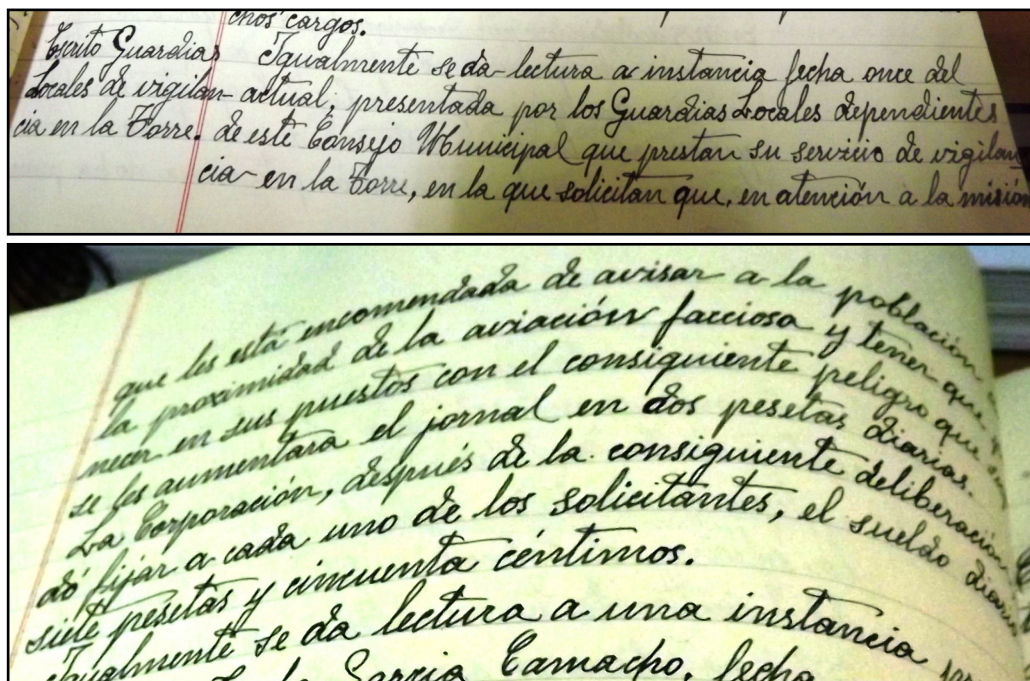 chos cargos.
Escrito Guardias Igualmente se da lectura a instancia fecha once del
Locales de vigilan- actual, presentada por los Guardias Locales dependientes
cia en la Torre. de este Consejo Municipal que prestan su servicio de vigilan
cia en la Torre, en la que solicitan que, en atención a la misión
que les está encomendada de avisar a la población
la proximidad de la aviación facciosa y tener que
necer en sus puestos con el consiguiente peligro que
se les aumentara el jornal en dos pesetas diarias.
La Corporación, después de la consiguiente deliberación
dó fijar a cada uno de los solicitantes, el sueldo diario
siete pesetas y cincuenta céntimos.
Igualmente se da lectura a una instancia
García Camacho, fecha